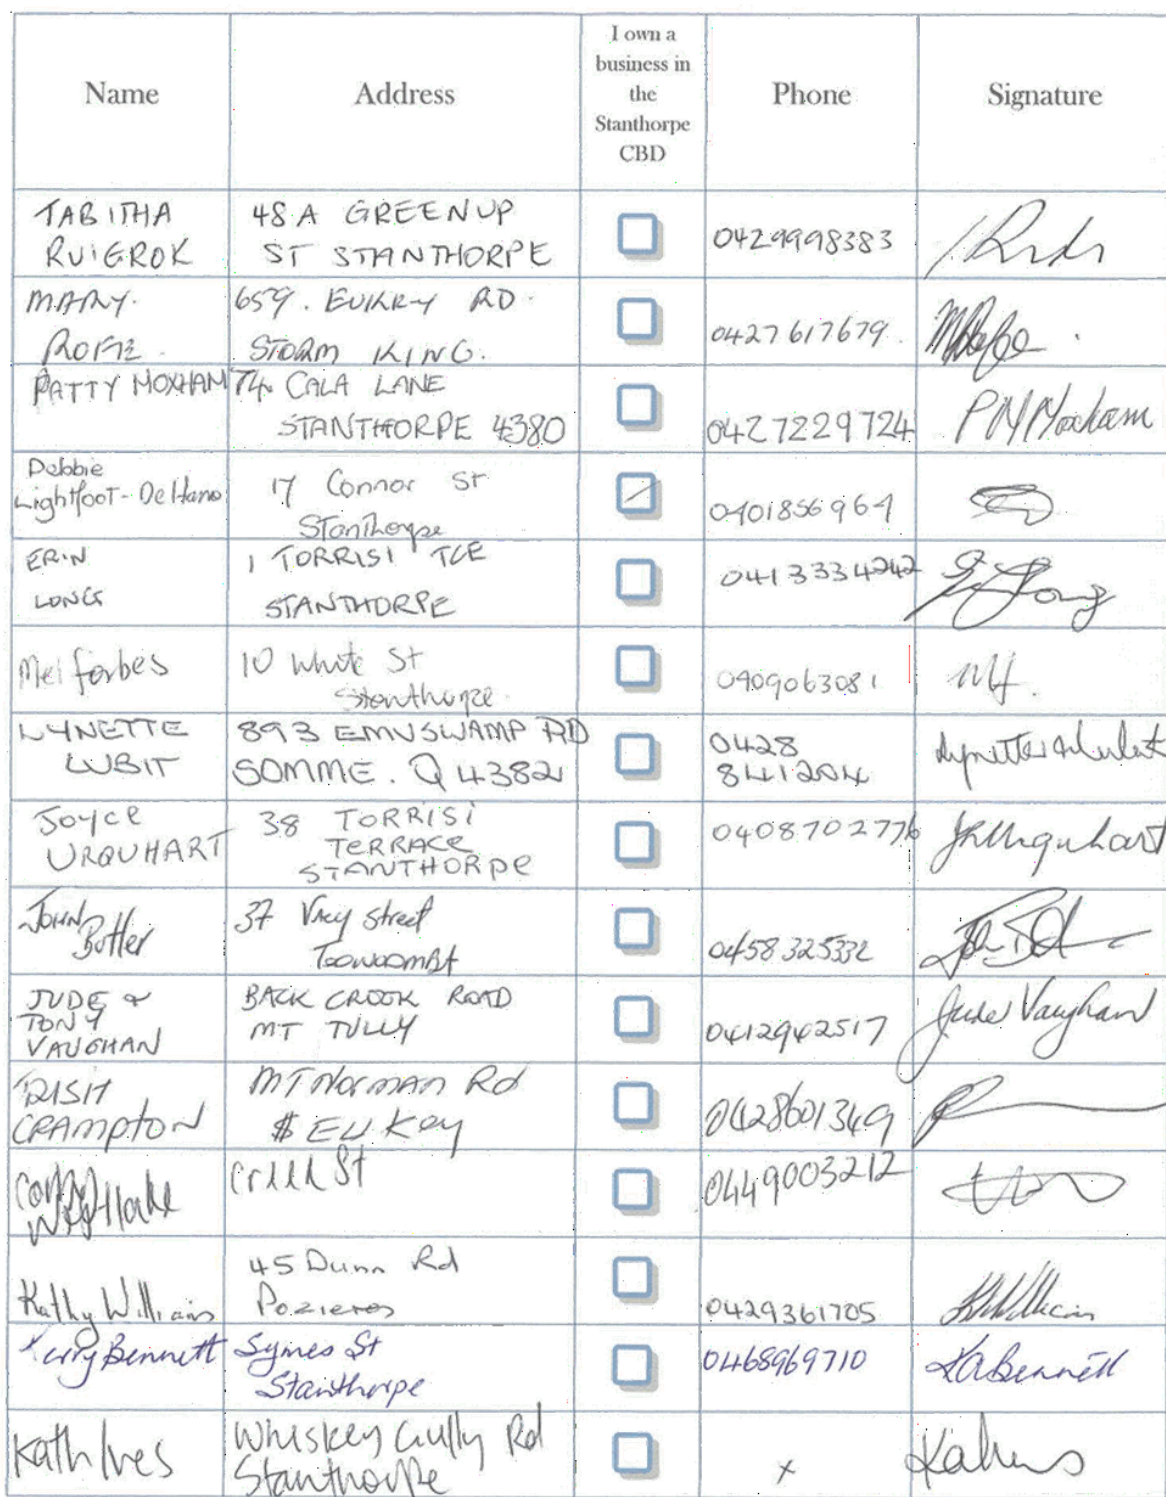 Name
Address
I own a
business in
the
Stanthorpe
CBD
Phone
Signature
TABITHA
RUIGROK
48A GREENUP
ST STANTHORPE
0429998383
MARY.
ROFE.
659. EUKEY RD.
STORM KING.
0427617679.
PATTY MOXHAM
74 CALA LANE
STANTHORPE 4380
0427229724
P M Moxham
Debbie
Lightfoot-
17 Connor St
Stanthorpe
0401856964
ERIN
LONG
1 TORRISI TCE
STANTHORPE
0413334242
E Long
Mel forbes
10 White St
Stanthorpe.
0409063081
Mf.
LYNETTE
LUBIT
893 EMUSWAMP RD
SOMME. Q 4382
0428
841204
JOYCE
URQUHART
38 TORRISI
TERRACE
STANTHORPE
0408702776
Urquhart
JOHN
Butler
37 Street
0458325332
JUDE &
TONY
VAUGHAN
BACK CREEK ROAD
MT TULLY
0412942517
Jude Vaughan
TRISH
CRAMPTON
MT NORMAN Rd
$ EUKEY
0428601349
Westlake
St
0449003212
Kathy Williams
45 Dunn Rd
Pozieres
0429361705
Kerry Bennett
Symes St
Stanthorpe
0468969710
KABennett
Kath Ives
Whiskey Gully Rd
Stanthorpe
x